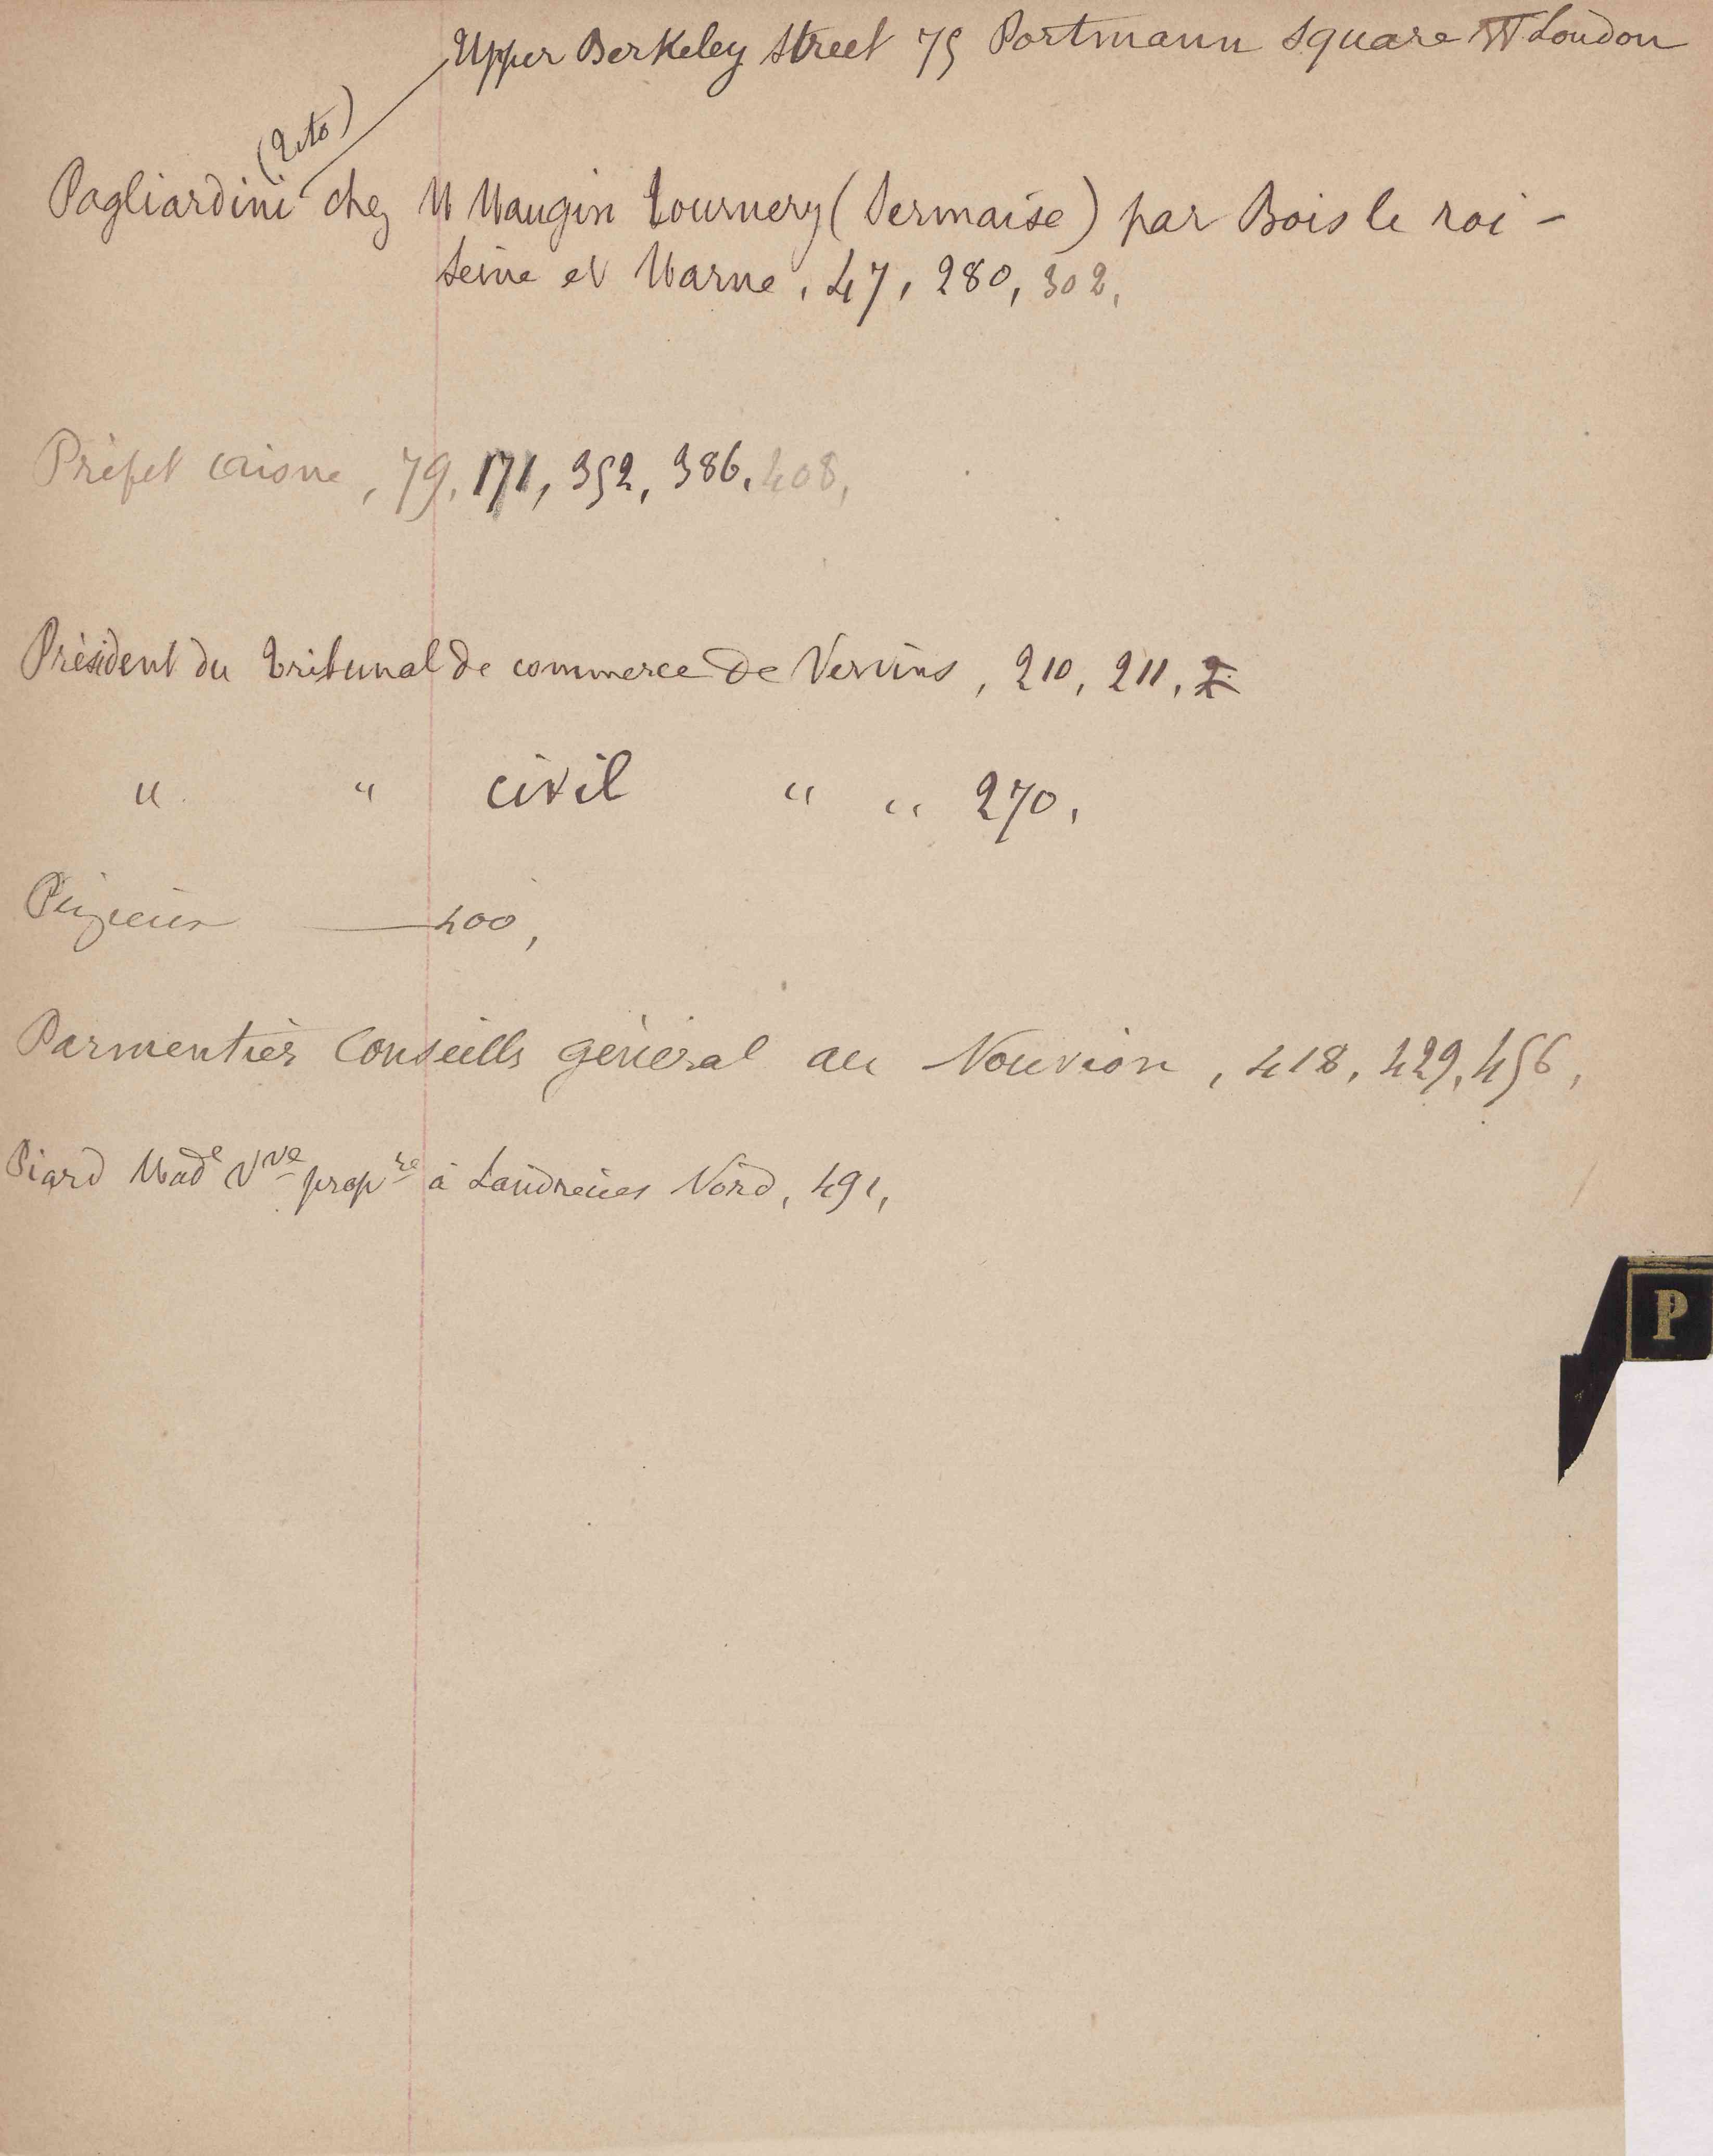 Upper Berkeley Street 75 Portmann Square W London
(Tito)
Pagliardini chez M Maugin Tournery (Sermaise) par Bois le roi -
Seine et Marne, 47, 280, 302,
Préfet Aisne, 79, 171, 352, 386, 408,
Président du Tribunal de commerce de Vervins, 210, 211,
" " civil " " 270,
400,
Parmentier Conseills général au Nouvion, 418, 429, 456,
Piard Made Vve propre à Landrecies Nord, 491,
P